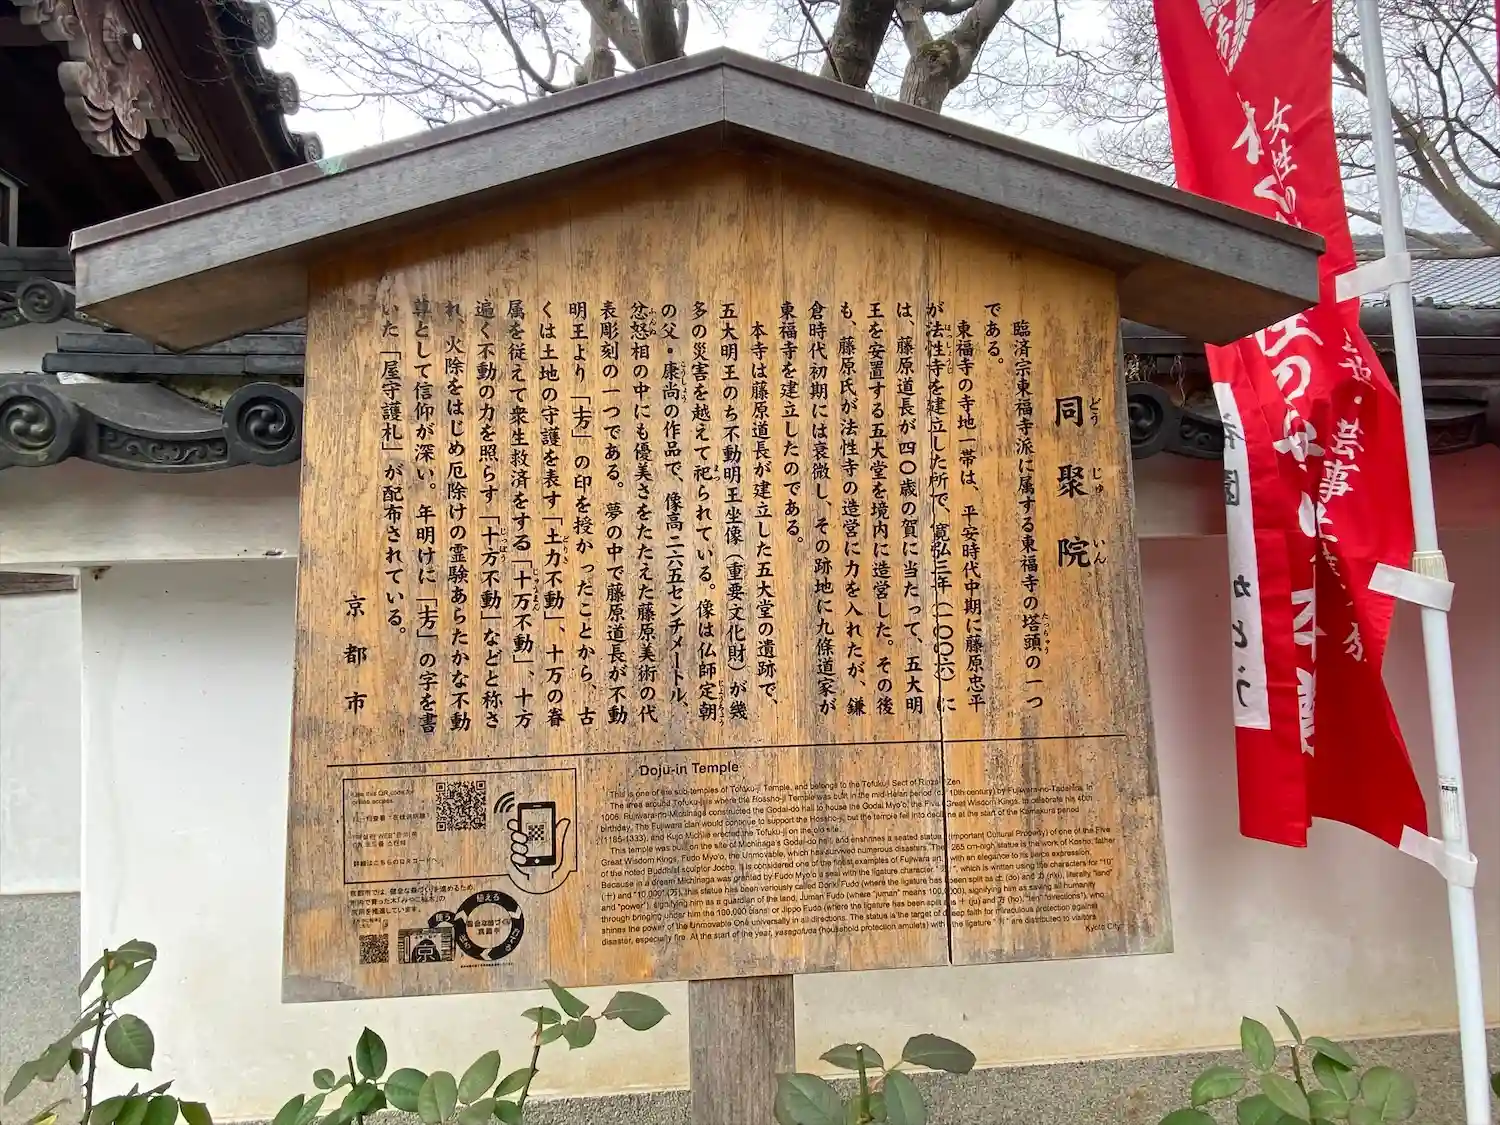 同聚院
どうじゅいん
臨済宗東福寺派に属する東福寺の塔頭の一つ
である。
東福寺の寺地一帯は、平安時代中期に藤原忠平
が法性寺を建立した所で、寛弘三年(一〇〇六)に
は、藤原道長が四〇歳の賀に当たって、五大明
王を安置する五大堂を境内に造営した。その後
も、藤原氏が法性寺の造営に力を入れたが、鎌
倉時代初期には衰微し、その跡地に九條道家が
東福寺を建立したのである。
本寺は藤原道長が建立した五大堂の遺跡で、
五大明王のうち不動明王坐像(重要文化財)が幾
多の災害を越えて祀られている。像は仏師定朝
の父・康尚の作品で、像高二六五センチメートル、
忿怒相の中にも優美さをたたえた藤原美術の代
表彫刻の一つである。夢の中で藤原道長が不動
明王より「𡈽」の印を授かったことから、古
くは土地の守護を表す「土力不動」、十万の眷
属を従えて衆生救済をする「十万不動」、十方
遍く不動の力を照らす「十方不動」などと称さ
れ、火除をはじめ厄除けの霊験あらたかな不動
尊として信仰が深い。年明けに「𡈽」の字を書
いた「屋守護札」が配布されている。
京都市
Dojū-in Temple
This is one of the sub-temples of Tofuku-ji Temple, and belongs to the Tofukuji Sect of Rinzai Zen.
The area around Tofuku-ji is where the Hossho-ji Temple was built in the mid-Heian period (c. 10th century) by Fujiwara-no-Tadahira. In
1006, Fujiwara-no-Michinaga constructed the Godai-do hall to house the Godai Myo'o, the Five Great Wisdom Kings, to celebrate his 40th
birthday. The Fujiwara clan would continue to support the Hossho-ji, but the temple fell into decline at the start of the Kamakura period
(1185-1333), and Kujo Michiie erected the Tofuku-ji on the old site.
This temple was built on the site of Michinaga's Godai-do hall, and enshrines a seated statue (Important Cultural Property) of one of the Five
Great Wisdom Kings, Fudo Myo'o, the Unmovable, which has survived numerous disasters. The 265 cm-high statue is the work of Kosho, father
of the noted Buddhist sculptor Jocho. It is considered one of the finest examples of Fujiwara art, with an elegance to its fierce expression.
Because in a dream Michinaga was granted by Fudo Myo'o a seal with the ligature character
, which is written using the characters for "10"
(十) and "10,000" (万), this statue has been variously called Doriki Fudo (where the ligature has been split as 土 (do) and 力 (riki), literally "land"
and "power"), signifying him as a guardian of the land, Juman Fudo (where "juman" means 100,000), signifying him as saving all humanity
through bringing under him the 100,000 clans, or Jippo Fudo (where the ligature has been split as 十 (ju) and 方 (ho), "ten" "directions"), who
shines the power of the Unmovable One universally in all directions. The statue is the target of deep faith for miraculous protection against
disaster, especially fire. At the start of the year, yasegofuda (household protection amulets) with the ligature
are distributed to visitors
Kyoto City
Take this QR code for
online access.
詳細はこちらのQRコードへ
京都市では、健全な森づくりを進めるため、
市内で育った木「みやこ杣木」の
利用を推進しています。
植える
使う
女性の
芸事